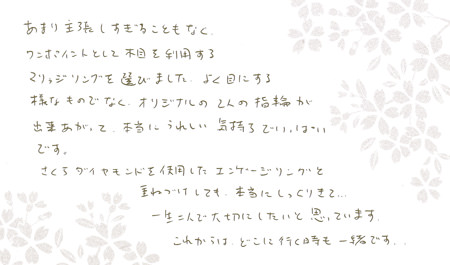 あまり主張しすぎることもなく、
ワンポイントとして木目を利用する
マリッジリングを選びました。よく目にする
様なものでなく、オリジナルの2人の指輪が
出来あがって、本当にうれしい気持ちでいっぱい
です。
さくらダイヤモンドを使用したエンゲージリングと
重ねづけしても、本当にしっくりきて…
一生二人で大切にしたいと思っています。
これからは、どこに行く時も一緒です。.